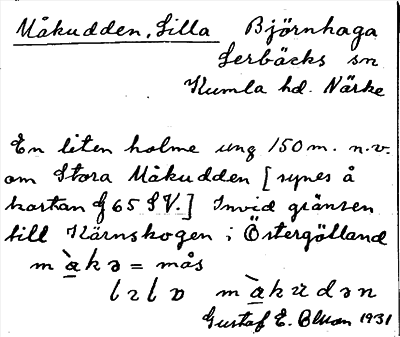 Måkudden, Lilla Björnhaga
Lerbäcks sn
Kumla hd. Närke
En liten holme ung 150 m. n.v.
om Stora Måkudden [synes å
kartan J 65 S V.] Invid gränsen
till Kärnskogen i Östergötland
m à k ə = mås
l ɪ l ɒ m à k ʉ d ə n
Gustaf E. 1931